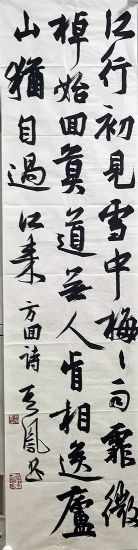 江行初見雪中梅〻雨霏微
棹始回莫道無人肯相送廬
山猶自過江來 方回詩 天鳳书